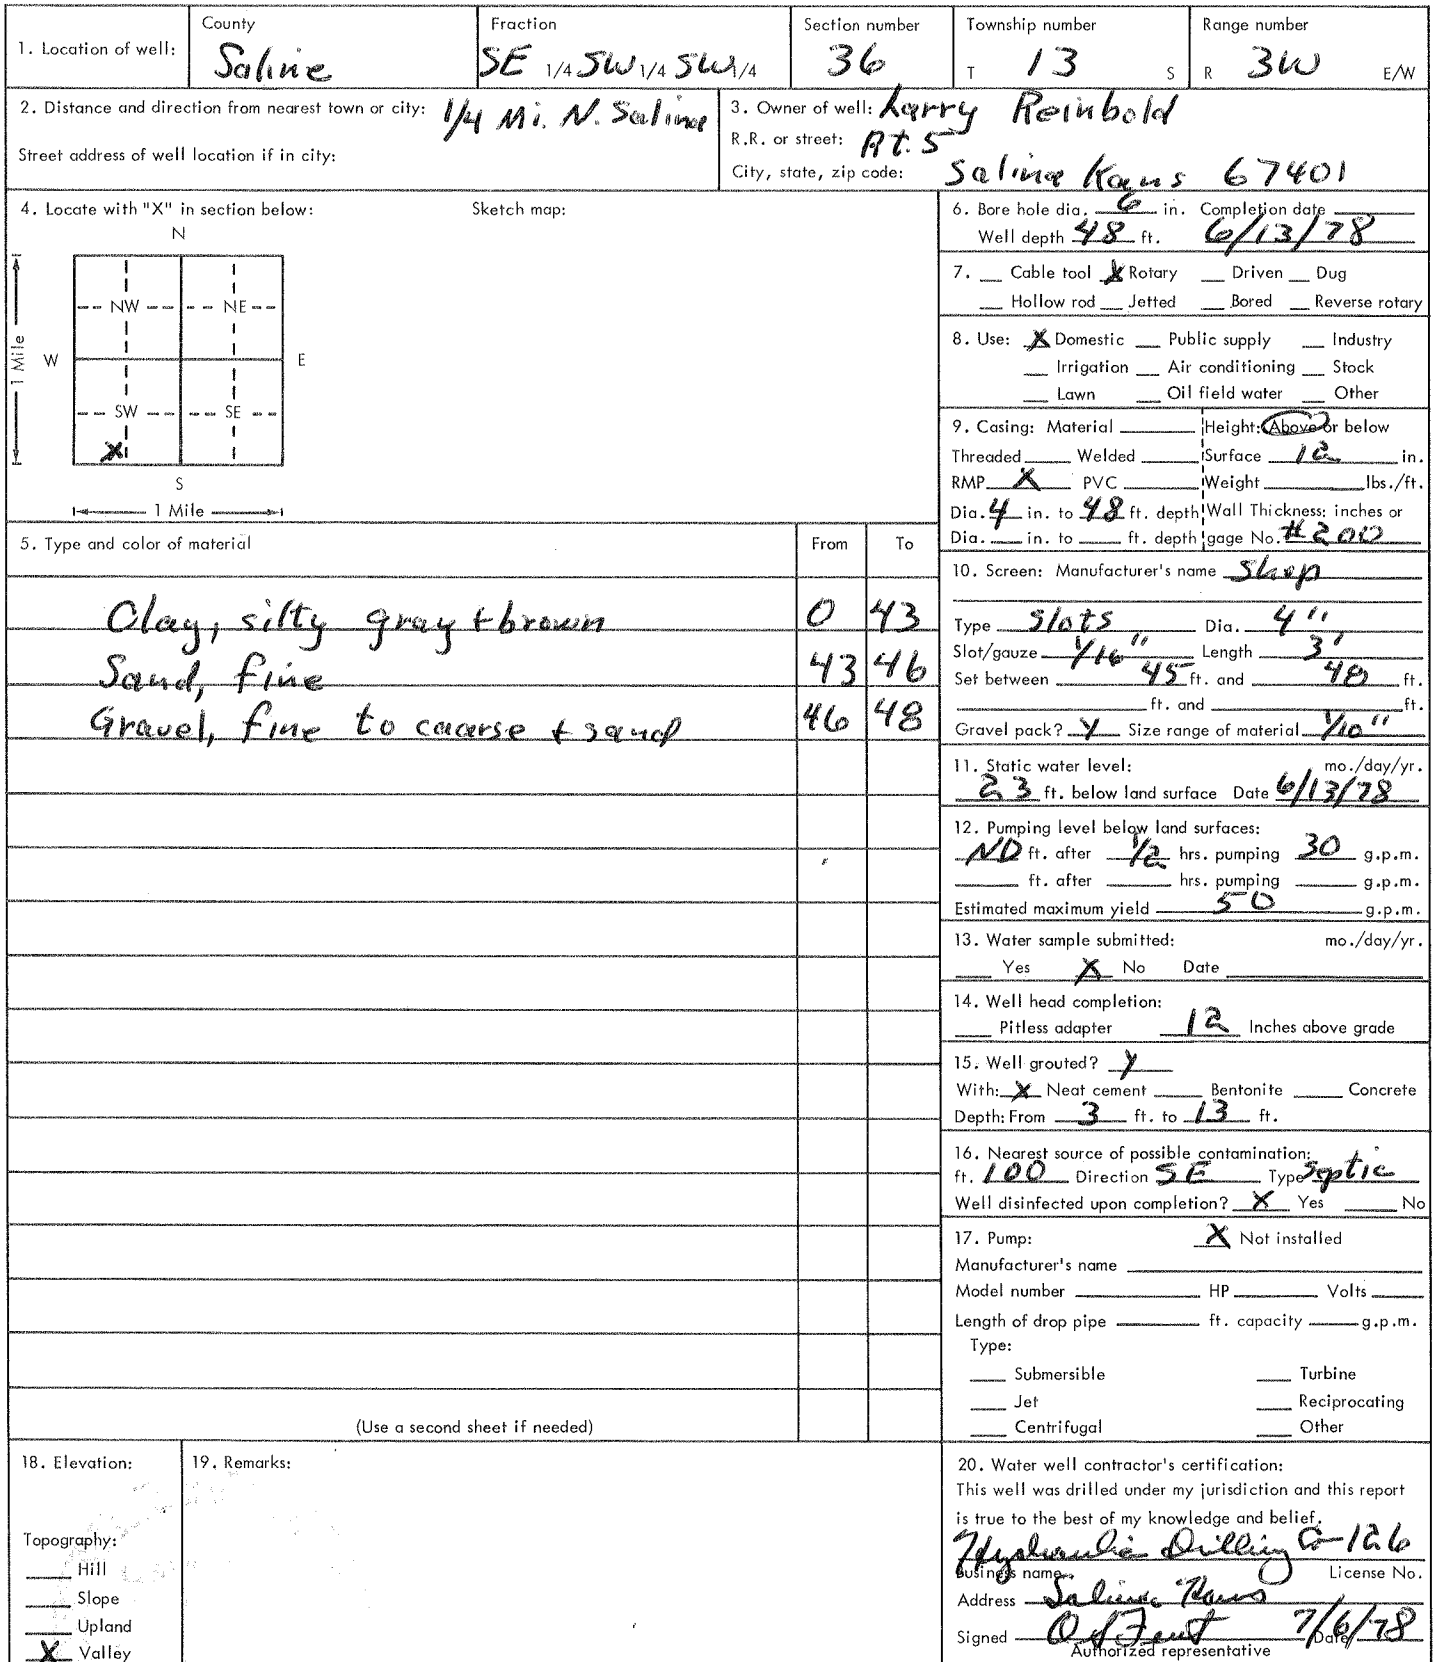 1. Location of well: County Saline Fraction SE 1/4 SW 1/4 SW 1/4 Section number 36 Township number T 13 S Range number R 3W E/W
2. Distance and direction from nearest town or city: 1/4 Mi. N. Salina
Street address of well location if in city:
3. Owner of well: Larry Reinbold
R.R. or street: Rt. 5
City, state, zip code: Salina Kans 67401
4. Locate with "X" in section below: Sketch map:
N
NW NE
W E
1 Mile
SW SE
X
S
1 Mile
5. Type and color of material From To
Clay, silty gray + brown 0 43
Sand, fine 43 46
Gravel, fine to coarse + sand 46 48
(Use a second sheet if needed)
6. Bore hole dia. 6 in. Completion date
Well depth 48 ft. 6/13/78
7. __ Cable tool X Rotary __ Driven __ Dug
__ Hollow rod __ Jetted __ Bored __ Reverse rotary
8. Use: X Domestic __ Public supply __ Industry
__ Irrigation __ Air conditioning __ Stock
__ Lawn __ Oil field water __ Other
9. Casing: Material ____ Height: Above or below
Threaded ____ Welded ____ Surface 12 in.
RMP X PVC ____ Weight ____ lbs./ft.
Dia. 4 in. to 48 ft. depth Wall Thickness: inches or
Dia. ____ in. to ____ ft. depth gage No. #200
10. Screen: Manufacturer's name Shop
Type Slots Dia. 4"
Slot/gauze 1/16" Length 3'
Set between 45 ft. and 48 ft.
____ ft. and ____ ft.
Gravel pack? Y Size range of material 1/10"
11. Static water level: mo./day/yr.
23 ft. below land surface Date 6/13/78
12. Pumping level below land surfaces:
ND ft. after 1/2 hrs. pumping 30 g.p.m.
____ ft. after ____ hrs. pumping ____ g.p.m.
Estimated maximum yield 50 g.p.m.
13. Water sample submitted: mo./day/yr.
__ Yes X No Date ____
14. Well head completion:
__ Pitless adapter 12 Inches above grade
15. Well grouted? Y
With: X Neat cement ____ Bentonite ____ Concrete
Depth: From 3 ft. to 13 ft.
16. Nearest source of possible contamination:
ft. 100 Direction SE Type Septic
Well disinfected upon completion? X Yes ____ No
17. Pump: X Not installed
Manufacturer's name ____
Model number ____ HP ____ Volts ____
Length of drop pipe ____ ft. capacity ____ g.p.m.
Type:
__ Submersible __ Turbine
__ Jet __ Reciprocating
__ Centrifugal __ Other
18. Elevation:
Topography:
__ Hill
__ Slope
__ Upland
X Valley
19. Remarks:
20. Water well contractor's certification:
This well was drilled under my jurisdiction and this report
is true to the best of my knowledge and belief.
Hydraulic Drilling Co-126
Business name License No.
Address Salina Kans
Signed 7/6/78 Date
Authorized representative